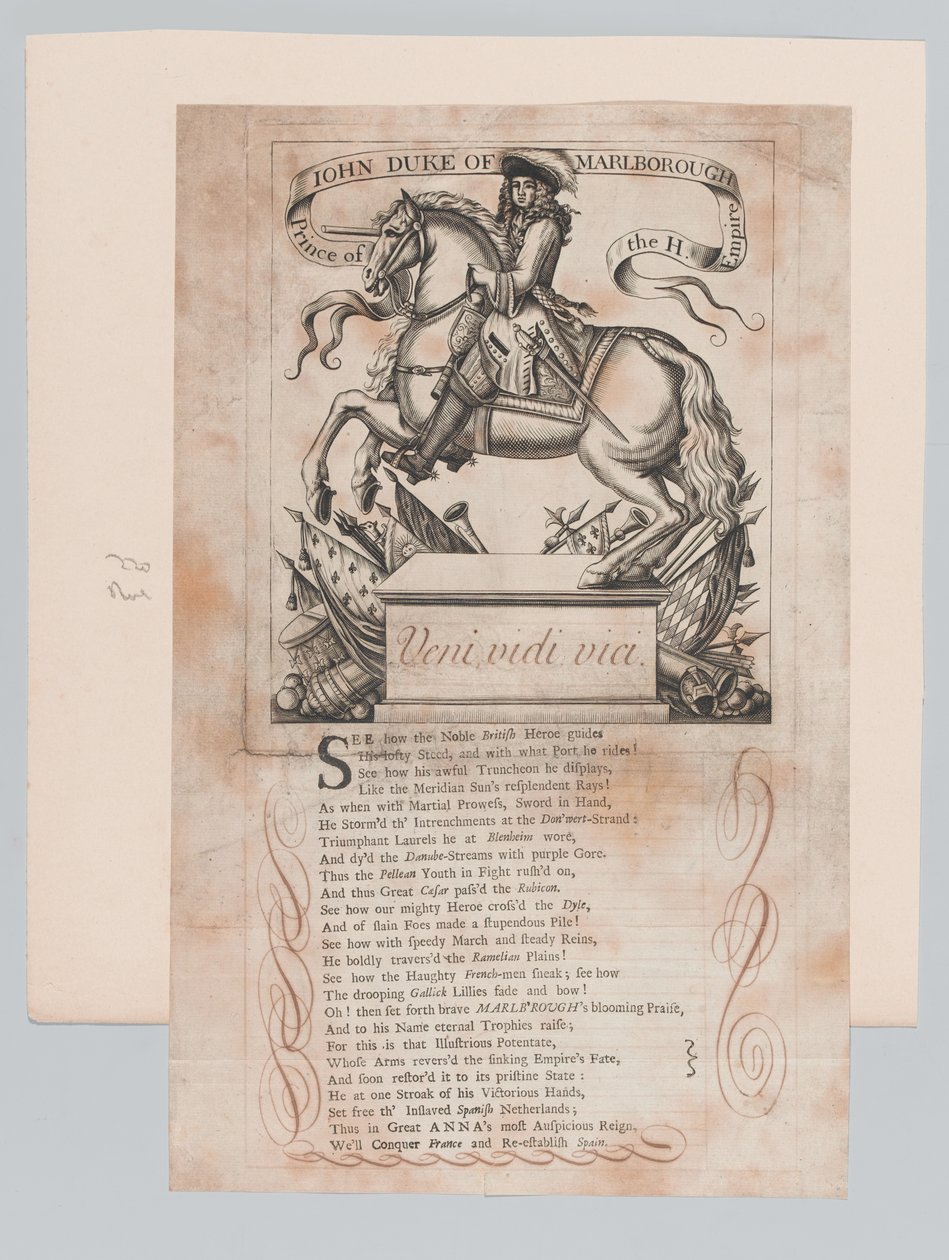 IOHN DUKE OF MARLBOROUGH
Prince of the H. Empire
Veni vidi vici.
SEE how the Noble Britiſh Heroe guides
His lofty Steed, and with what Port he rides!
See how his awful Truncheon he diſplays,
Like the Meridian Sun's reſplendent Rays!
As when with Martial Proweſs, Sword in Hand,
He Storm'd th' Intrenchments at the Don'wert-Strand:
Triumphant Laurels he at Blenheim wore,
And dy'd the Danube-Streams with purple Gore.
Thus the Pellean Youth in Fight ruſh'd on,
And thus Great Cæſar paſs'd the Rubicon.
See how our mighty Heroe croſs'd the Dyle,
And of ſlain Foes made a ſtupendous Pile!
See how with ſpeedy March and ſteady Reins,
He boldly travers'd the Ramelian Plains!
See how the Haughty French-men ſneak; ſee how
The drooping Gallick Lillies fade and bow!
Oh! then ſet forth brave MARLB'ROUGH's blooming Praiſe,
And to his Name eternal Trophies raiſe;
For this is that Illuſtrious Potentate,
Whoſe Arms revers'd the ſinking Empire's Fate,
And ſoon reſtor'd it to its priſtine State:
He at one Stroak of his Victorious Hands,
Set free th' Inſlaved Spaniſh Netherlands;
Thus in Great ANNA's moſt Auſpicious Reign,
We'll Conquer France and Re-eſtabliſh Spain.